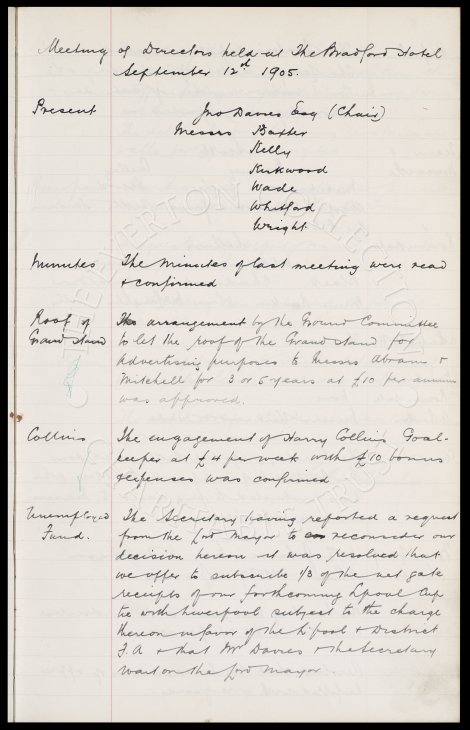 Meeting of Directors held at The Bradford Hotel
September 12th 1905.
Present Jno Davies Esq (Chair)
Messrs Baxter
Kelly
Kirkwood
Wade
Whitford
Wright
Minutes The minutes of last meeting were read
& confirmed
Roof of The arrangement by the Ground Committee
Grand Stand to let the roof of the Grand stand for
Advertising purposes to Messrs Abrams &
Mitchell for 3 or 5 years at £10 per annum
was approved.
Collins The engagement of Harry Collins Goal-
keeper at £4 per week with £10 bonus
& expenses was confirmed
Unemployed The Secretary having reported a request
Fund. from the Lord Mayor to reconsider our
decision hereon it was resolved that
we offer to subscribe 1/3 of the net gate
receipts of our forthcoming Lpool Cup
tie with Liverpool subject to the charge
thereon in favor of the L'pool & District
F.A & that Mr Davies & the Secretary
wait on the Lord Mayor.
THE EVERTON COLLECTION
CHARITABLE TRUST